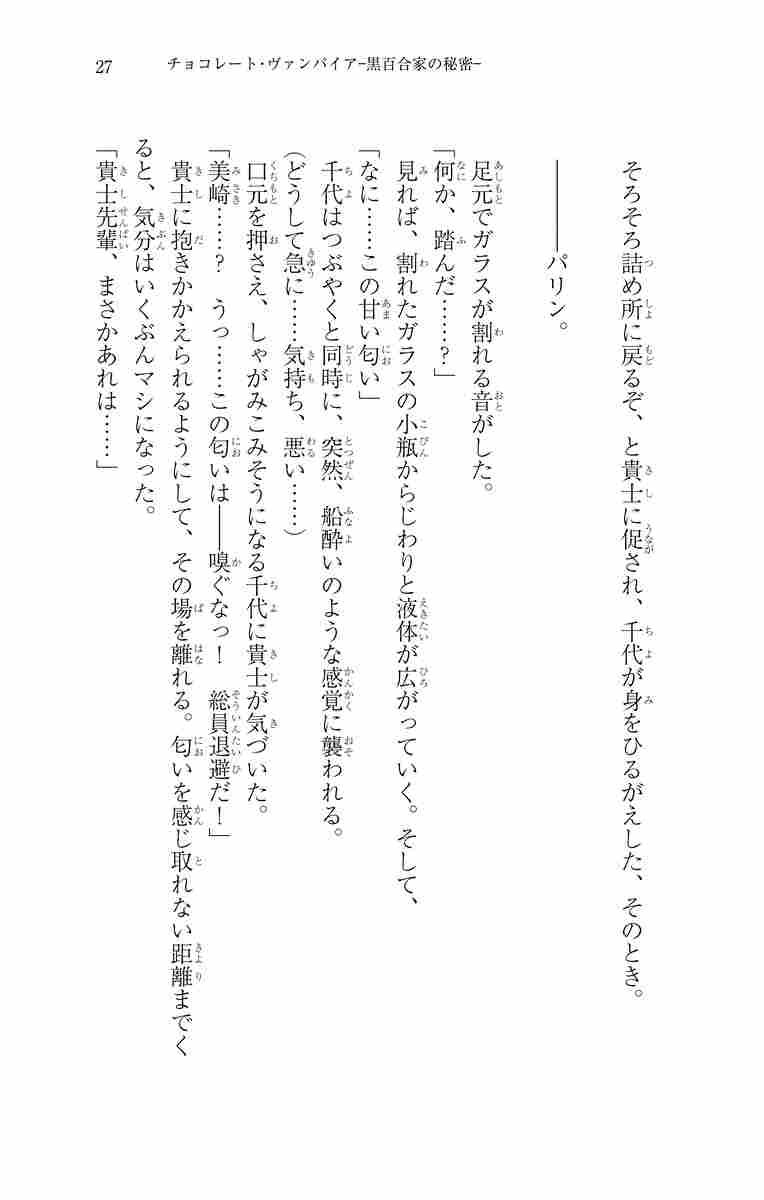 27
チョコレート・ヴァンパイア―黒百合家の秘密―
そろそろ詰め所に戻るぞ、と貴士に促され、千代が身をひるがえした、そのとき。
――――パリン。
足元でガラスが割れる音がした。
「何か、踏んだ……?」
見れば、割れたガラスの小瓶からじわりと液体が広がっていく。そして、
「なに……この甘い匂い」
千代はつぶやくと同時に、突然、船酔いのような感覚に襲われる。
(どうして急に……気持ち、悪い……)
口元を押さえ、しゃがみこみそうになる千代に貴士が気づいた。
「美崎……? うっ……この匂いは――嗅ぐなっ! 総員退避だ!」
貴士に抱きかかえられるようにして、その場を離れる。匂いを感じ取れない距離までく
ると、気分はいくぶんマシになった。
「貴士先輩、まさかあれは……」